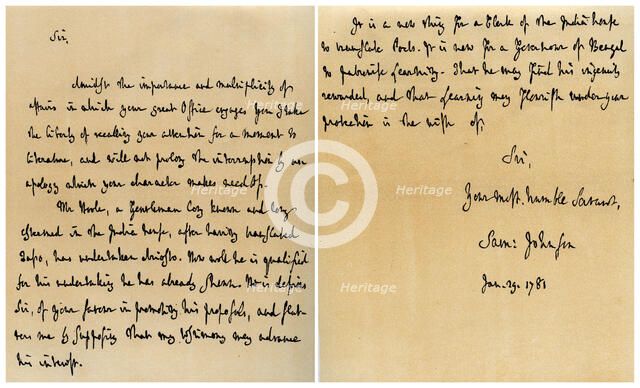 Sir,
Amidst the importance and multiplicity of
affairs in which your great Office engages you I take
the liberty of recalling your attention for a moment to
literature, and will not prolong the interruption by an
apology which your character makes needless.
Mr Hoole, a Gentleman long known and long
esteemed in the India house, after having translated
Tasso, has undertaken Ariosto. How well he is qualified
for his undertaking he has already shewn. He is desirous
Sir, of your favour in promoting his proposals, and flat-
ters me by supposing that my testimony may advance
his interest.
It is a new thing for a Clerk of the India house
to translate Poets. It is new for a Governour of Bengal
to patronise learning. That he may find his ingenuity
rewarded, and that learning may flourish under your
protection is the wish of,
Sir,
Your most humble Servant,
Sam: Johnson
Jan. 29. 1781
Heritage
Heritage
Heritage
Heritage
Heritage
Heritage
©